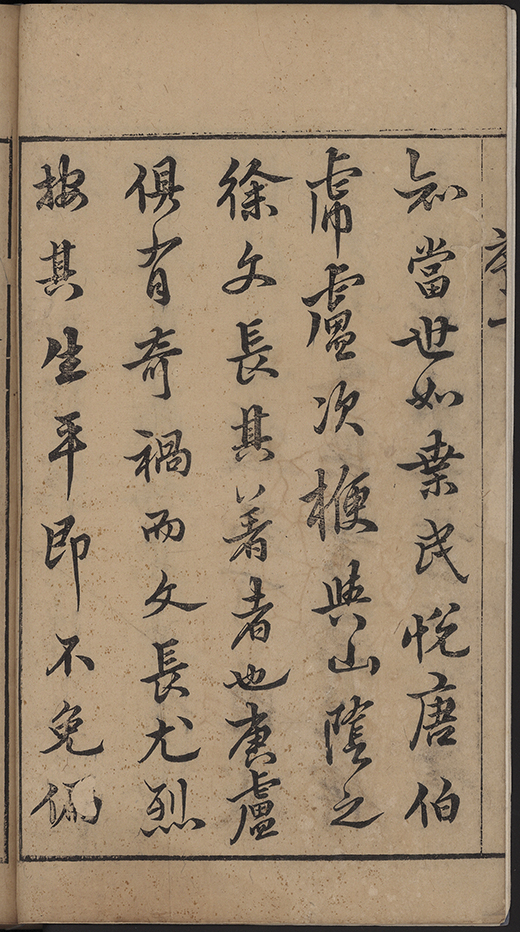 知當世如桒民悅唐伯
乕盧次楩與山陰之
徐文長其著者也唐盧
俱有奇禍而文長尤烈
按其生平即不免偏